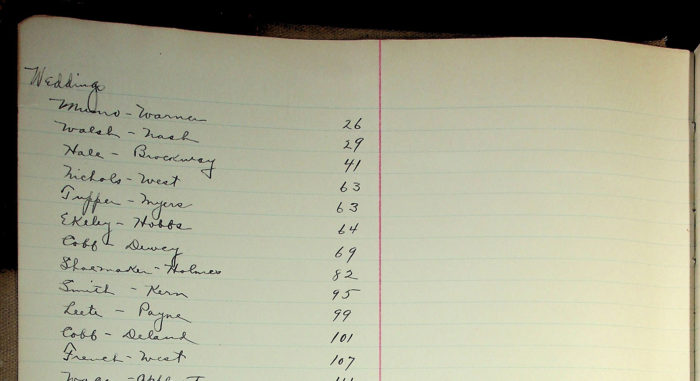 Weddings
Munro - Warner 26
Walsh - Nash 29
Hale - Brockway 41
Nichols - West 63
Tupper - Myers 63
Ekeley - Hobbs 64
Cobb - Dewey 69
Shoemaker - Holmes 82
Smith - Kern 95
Leete - Payne 99
Cobb - Deland 101
French - West 107